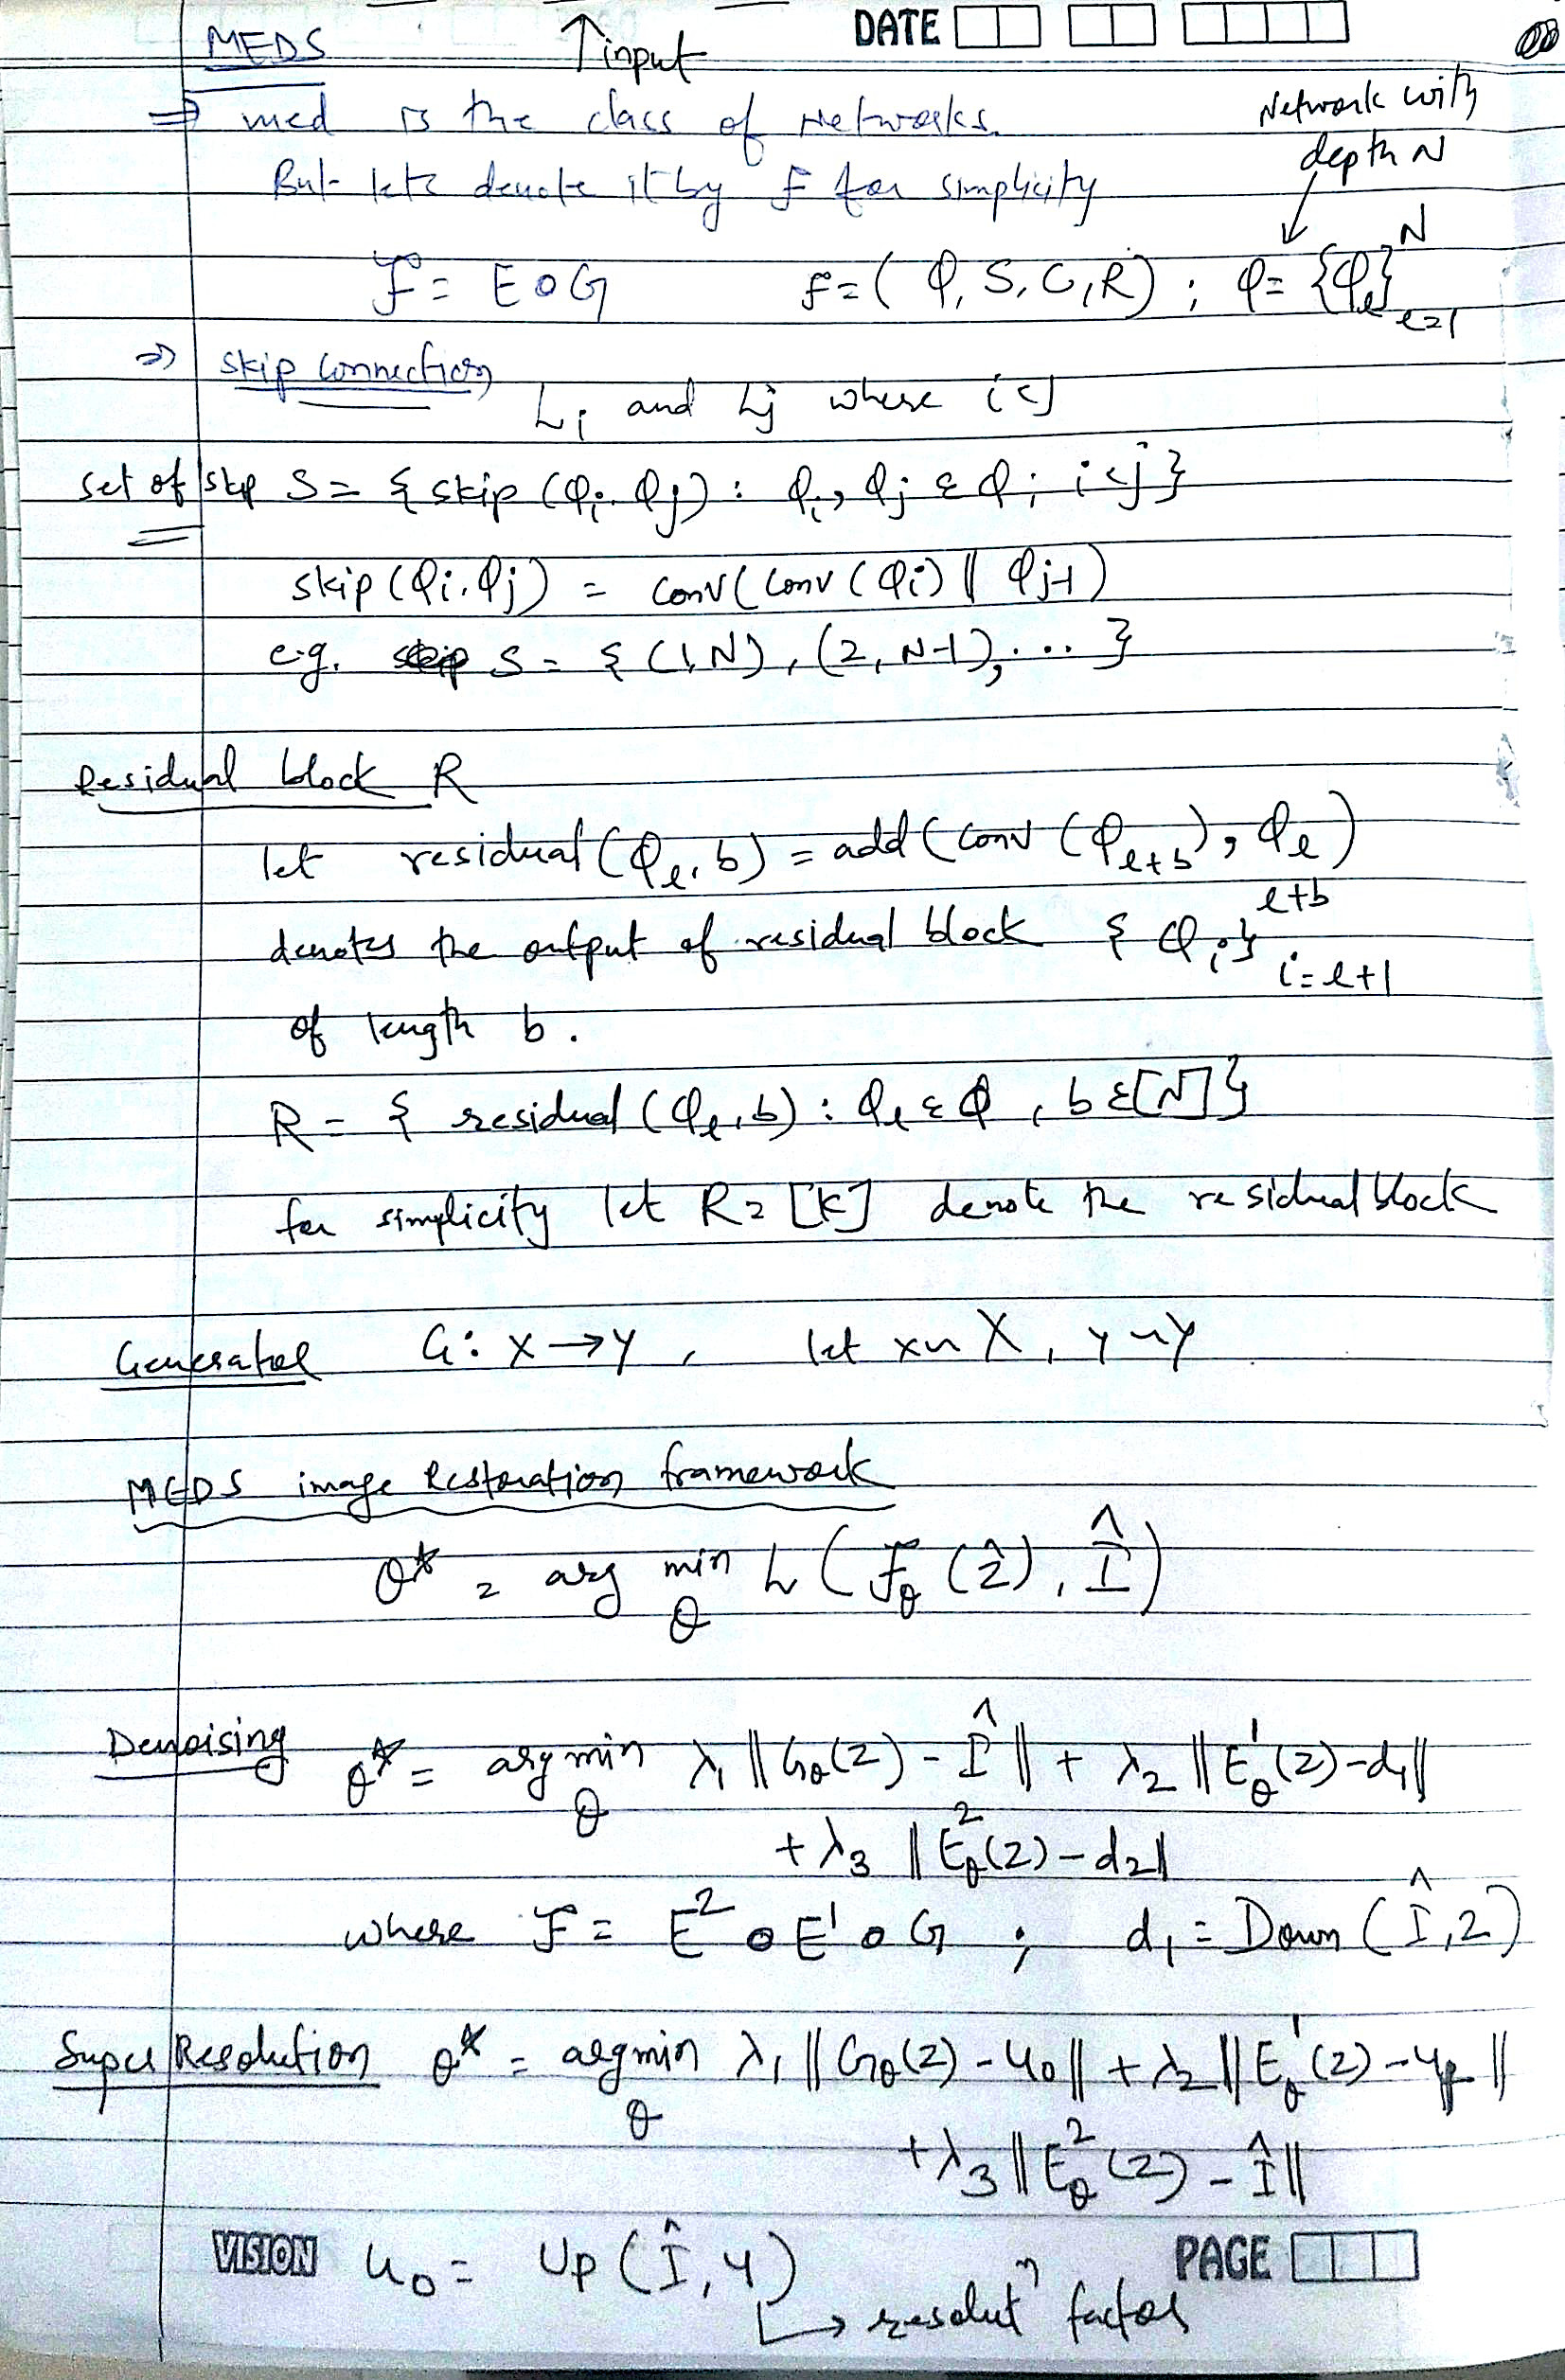 DATE
MEDS ↑ input
⇒ med is the class of Networks. Network with
depth N
But lets denote it by F for simplicity
F = E o G f = ( φ, S, C, R ) ; φ = {φ_l}_{l=1}^{N}
⇒ skip connection
L_i and L_j where i < j
set of skip S = { skip (φ_i, φ_j) : φ_i, φ_j ε φ ; i < j }
skip (φ_i, φ_j) = conv ( conv (φ_i) || φ_{j-1} )
e.g. S = { (1, N), (2, N-1), ... }
Residual block R
let residual (φ_l, b) = add ( conv (φ_{l+b}), φ_l )
denotes the output of residual block { φ_i }_{i=l+1}^{l+b}
of length b.
R = { residual (φ_l, b) : φ_l ε φ, b ε [N] }
for simplicity let R = [K] denote the residual block
Generator G : X → Y, let x ~ X, y ~ Y
MEDS image Restoration framework
θ* = arg min_θ L ( F_θ (ẑ), Î )
Denoising θ* = arg min_θ λ_1 || G_θ(z) - Î || + λ_2 || E^1_θ(z) - d_1 ||
+ λ_3 || E^2_θ(z) - d_2 ||
where F = E^2 o E^1 o G ; d_1 = Down ( Î, 2 )
Super Resolution θ* = argmin_θ λ_1 || G_θ(z) - u_0 || + λ_2 || E^1_θ(z) - ||
+ λ_3 || E^2_θ(z) - Î ||
VISION u_0 = Up ( Î, 4 ) PAGE
↳ resolutⁿ factor